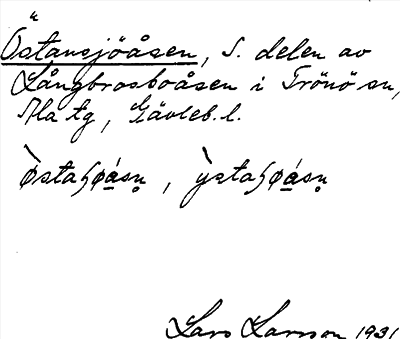 Östansjöåsen, S. delen av
Långbrosboåsen i Trönö sn,
Ala tg, Gävleb.l.
`østaɧøásn̥, `ystaɧøásn̥
Lars Larsson 1931